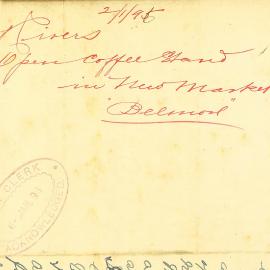 2/1/95
Rivers
Open Coffee Stand
in New Market
"Belmont"
CLERK
ACKNOWLEDGED